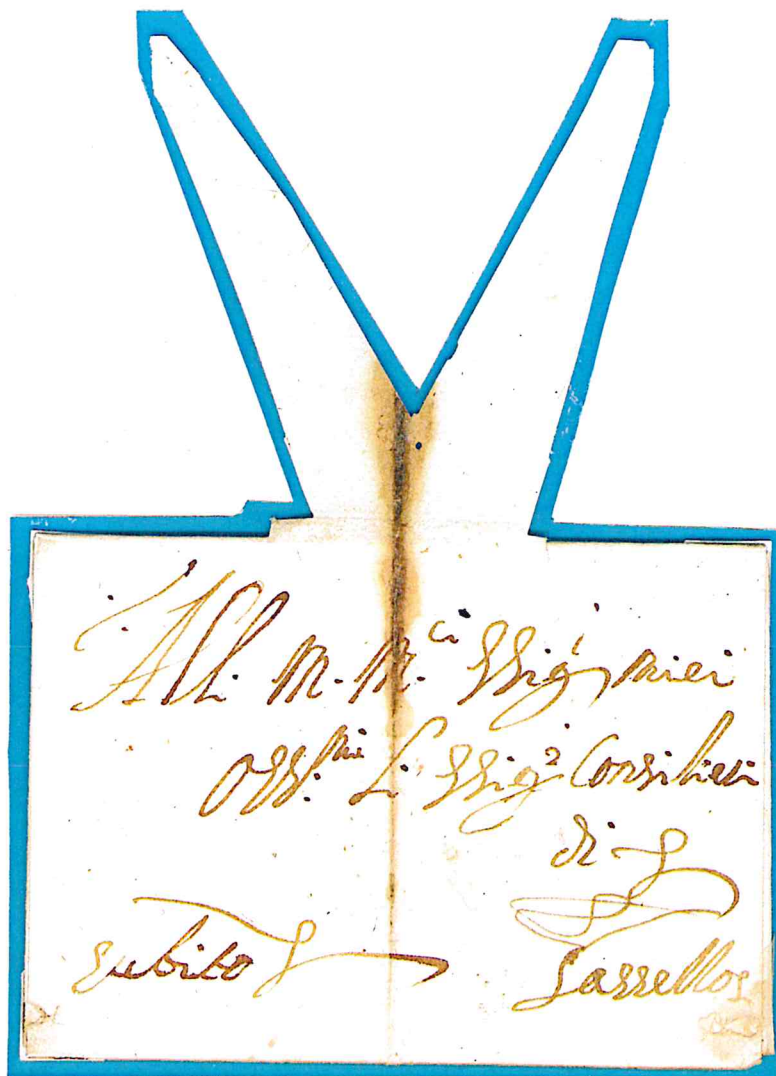 All. M. M.ci SSig.i miei
oss.mi L. SSig.i Consilieri
di
subito Sassello